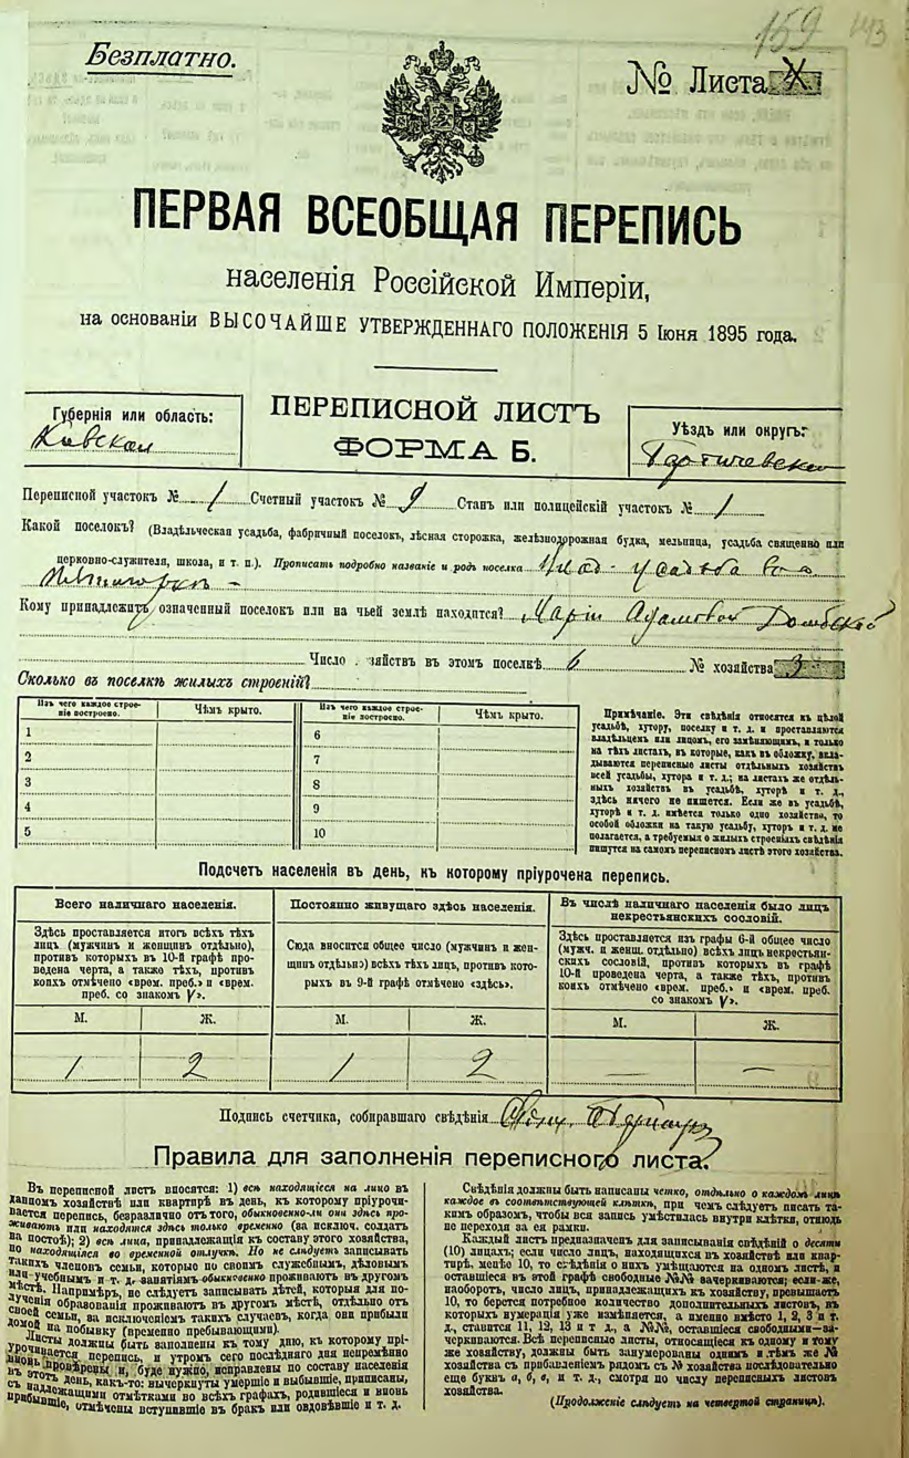 159
Безплатно.
№ Листа X
ПЕРВАЯ ВСЕОБЩАЯ ПЕРЕПИСЬ
населенія Россійской Имперіи,
на основаніи ВЫСОЧАЙШЕ УТВЕРЖДЕННАГО ПОЛОЖЕНІЯ 5 Іюня 1895 года.
Губернія или область:
Кіевская
ПЕРЕПИСНОЙ ЛИСТЪ
ФОРМА Б.
Уѣздъ или округъ:
Переписной участокъ № 1 Счетный участокъ № 9 Станъ или полицейскій участокъ № 1
Какой поселокъ? (Владѣльческая усадьба, фабричный поселокъ, лѣсная сторожка, желѣзнодорожная будка, мельница, усадьба священно или
церковно-служителя, школа, и т. п.). Прописать подробно названіе и родъ поселка Влад. усадьба
Кому принадлежитъ означенный поселокъ или на чьей землѣ находится? Маріи Адамовой
Число зяйствъ въ этомъ поселкѣ 6 № хозяйства 3
Сколько въ поселкѣ жилыхъ строеній?
Изъ чего каждое строе-
ніе построено.
Чѣмъ крыто.
Изъ чего каждое строе-
ніе построено.
Чѣмъ крыто.
1 6
2 7
3 8
4 9
5 10
Примѣчаніе. Эти свѣдѣнія относятся къ цѣлой
усадьбѣ, хутору, поселку и т. д. и проставляются
владѣльцемъ или лицомъ, его замѣняющимъ, и только
на тѣхъ листахъ, въ которые, какъ въ обложку, вкла-
дываются переписные листы отдѣльныхъ хозяйствъ
всей усадьбы, хутора и т. д.; на листахъ же отдѣль-
ныхъ хозяйствъ въ усадьбѣ, хуторѣ и т. д.,
здѣсь ничего не пишется. Если же въ усадьбѣ,
хуторѣ и т. д. имѣется только одно хозяйство, то
особой обложки на такую усадьбу, хуторъ и т. д. не
полагается, а требуемыя о жилыхъ строеніяхъ свѣдѣнія
пишутся на самомъ переписномъ листѣ этого хозяйства.
Подсчетъ населенія въ день, къ которому пріурочена перепись.
Всего наличнаго населенія.
Здѣсь проставляется итогъ всѣхъ тѣхъ
лицъ (мужчинъ и женщинъ отдѣльно),
противъ которыхъ въ 10-й графѣ про-
ведена черта, а также тѣхъ, противъ
коихъ отмѣчено «врем. преб.» и «врем.
преб. со знакомъ V».
Постоянно живущаго здѣсь населенія.
Сюда вносится общее число (мужчинъ и жен-
щинъ отдѣльно) всѣхъ тѣхъ лицъ, противъ кото-
рыхъ въ 9-й графѣ отмѣчено «здѣсь».
Въ числѣ наличнаго населенія было лицъ
некрестьянскихъ сословій.
Здѣсь проставляется изъ графы 6-й общее число
(мужч. и женщ. отдѣльно) всѣхъ лицъ некрестьян-
скихъ сословій, противъ которыхъ въ графѣ
10-й проведена черта, а также тѣхъ, противъ
коихъ отмѣчено «врем. преб.» и «врем. преб.
со знакомъ V».
М. Ж. М. Ж. М. Ж.
1 2 1 2 — —
Подпись счетчика, собиравшаго свѣдѣнія
Правила для заполненія переписного листа.
Въ переписной листъ вносятся: 1) всѣ находящіеся на лицо въ
данномъ хозяйствѣ или квартирѣ въ день, къ которому пріурочи-
вается перепись, безразлично отъ того, обыкновенно-ли они здѣсь про-
живаютъ или находятся здѣсь только временно (за исключ. солдатъ
на постоѣ); 2) всѣ лица, принадлежащія къ составу этого хозяйства,
но находящіяся во временной отлучкѣ. Но не слѣдуетъ записывать
такихъ членовъ семьи, которые по своимъ служебнымъ, дѣловымъ
или учебнымъ и т. д. занятіямъ обыкновенно проживаютъ въ другомъ
мѣстѣ. Напримѣръ, не слѣдуетъ записывать дѣтей, которыя для по-
лученія образованія проживаютъ въ другомъ мѣстѣ, отдѣльно отъ
своей семьи, за исключеніемъ такихъ случаевъ, когда они прибыли
домой на побывку (временно пребывающими).
Листы должны быть заполнены къ тому дню, къ которому прі-
урочивается перепись, и утромъ сего послѣдняго дня непремѣнно
вновь провѣрены и, буде нужно, исправлены по составу населенія
въ этотъ день, какъ-то: вычеркнуты умершіе и выбывшіе, приписаны,
съ надлежащими отмѣтками во всѣхъ графахъ, родившіеся и вновь
прибывшіе, отмѣчены вступившіе въ бракъ или овдовѣвшіе и т. д.
Свѣдѣнія должны быть написаны четко, отдѣльно о каждомъ лицѣ
каждое въ соотвѣтствующей клѣткѣ, при чемъ слѣдуетъ писать та-
кимъ образомъ, чтобы вся запись умѣстилась внутри клѣтки, отнюдь
не переходя за ея рамки.
Каждый листъ предназначенъ для записыванія свѣдѣній о десяти
(10) лицахъ; если число лицъ, находящихся въ хозяйствѣ или квар-
тирѣ, менѣе 10, то свѣдѣнія о нихъ умѣщаются на одномъ листѣ, и
оставшіеся въ этой графѣ свободные №№ зачеркиваются; если-же,
наоборотъ, число лицъ, принадлежащихъ къ хозяйству, превышаетъ
10, то берется потребное количество дополнительныхъ листовъ, въ
которыхъ нумерація уже измѣняется, а именно вмѣсто 1, 2, 3 и т.
д., ставится 11, 12, 13 и т д., а №№, оставшіеся свободными—за-
черкиваются. Всѣ переписные листы, относящіеся къ одному и тому
же хозяйству, должны быть занумерованы однимъ и тѣмъ же №
хозяйства съ прибавленіемъ рядомъ съ № хозяйства послѣдовательно
еще буквъ а, б, в, и т. д., смотря по числу переписныхъ листовъ
хозяйства.
(Продолженіе слѣдуетъ на четвертой страницѣ).